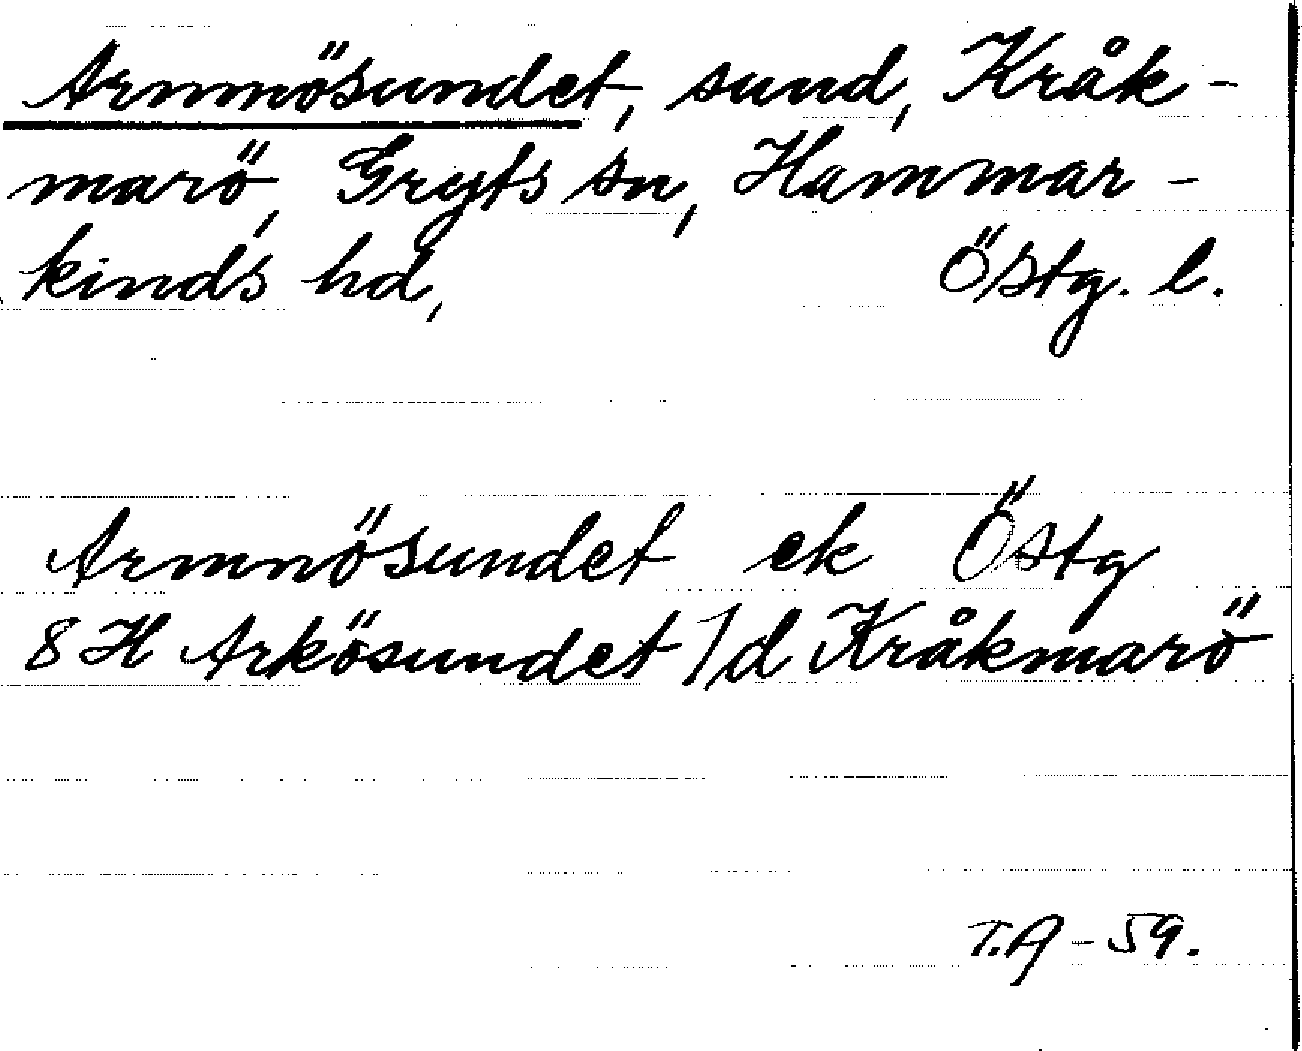 Armnösundet, sund, Kråk-
marö, Gryts sn, Hammar-
kinds hd, Östg. l.
Armnösundet ek Östg
8H Arkösundet 1/d Kråkmarö
T.A-59.